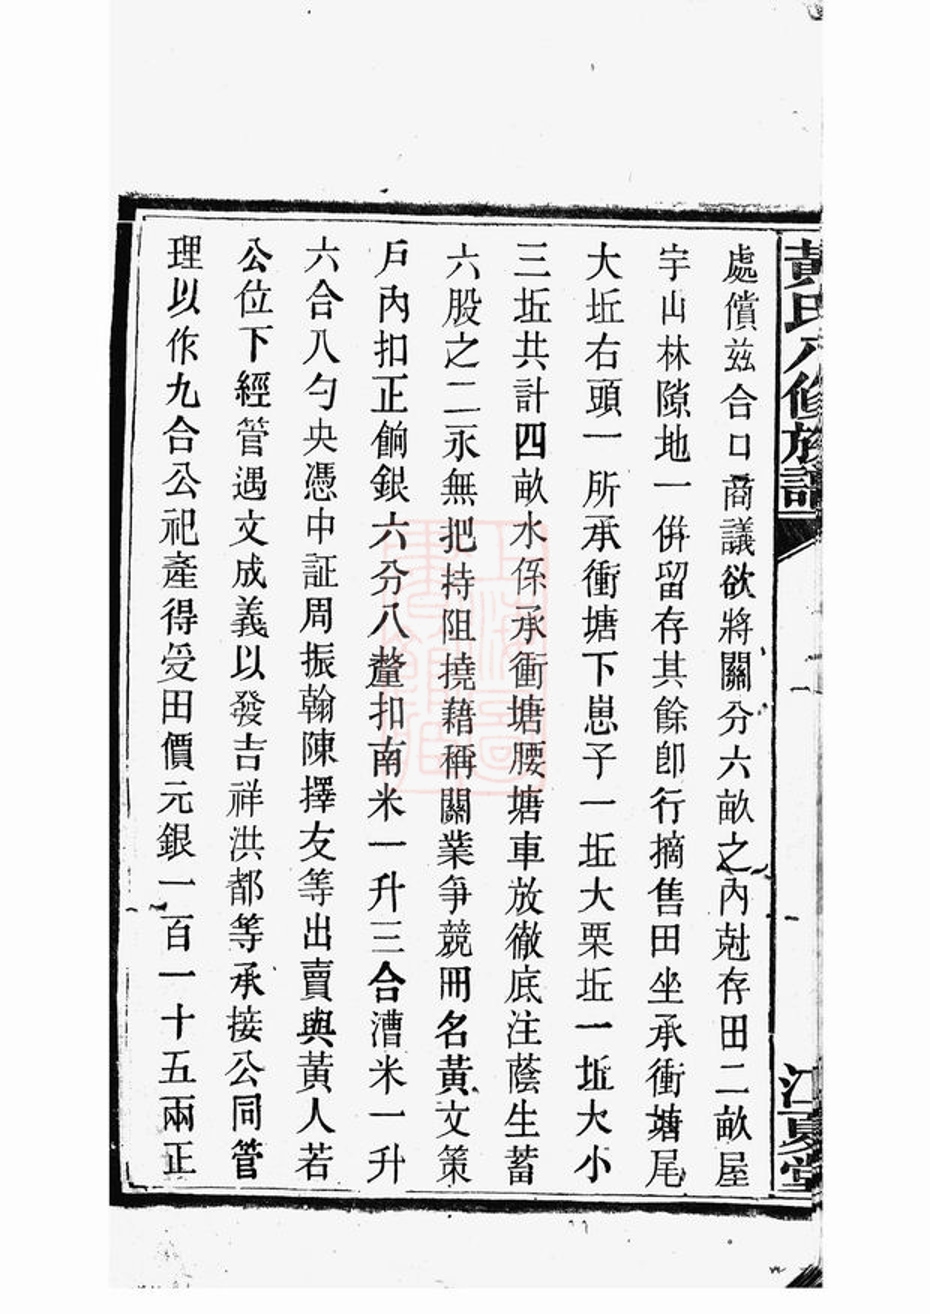 黃氏八修族譜
江夏堂
處償茲合口商議欲將關分六畝之內尅存田二畝屋
宇山林隙地一併留存其餘卽行摘售田坐承衝塘尾
大坵右頭一所承衝塘下崽子一坵大栗坵一坵大小
三坵共計四畝水係承衝塘腰塘車放徹底注蔭生蓄
六股之二永無把持阻撓藉稱關業爭競冊名黃文策
戶內扣正餉銀六分八釐扣南米一升三合漕米一升
六合八勺央憑中証周振翰陳擇友等出賣與黃人若
公位下經管遇文成義以發吉祥洪都等承接公同管
理以作九合公祀產得受田價元銀一百一十五兩正